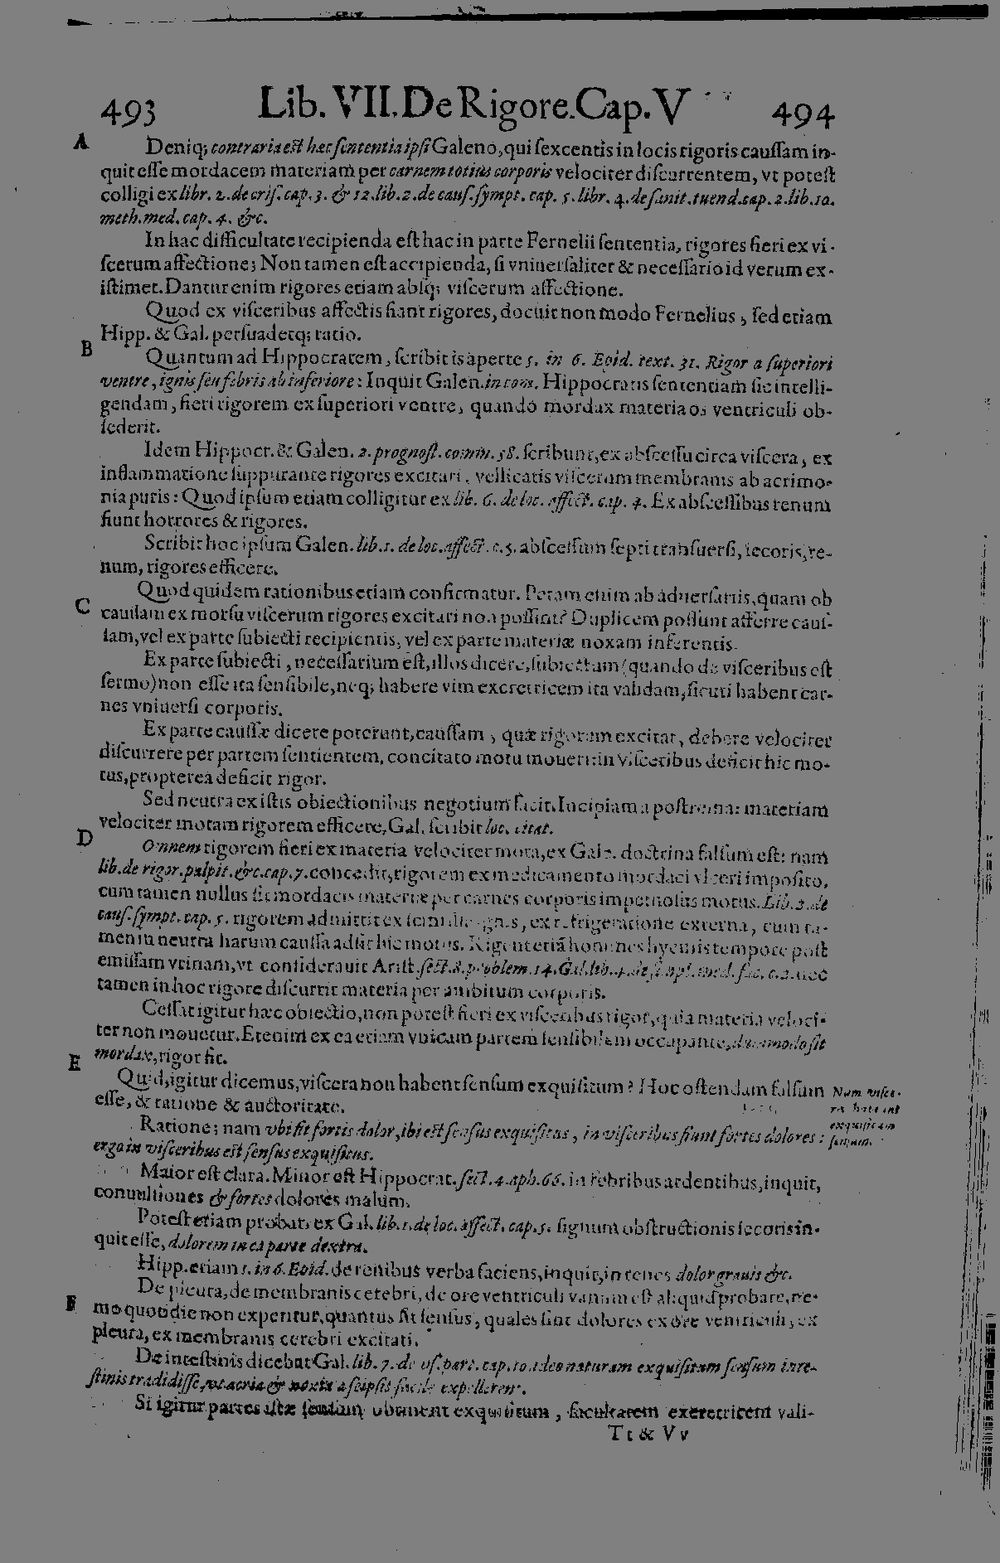 493 Lib. VII. De Rigore. Cap. V 494
A Deniq; contraria est hæc sententia ipsi Galeno, qui sexcentis in locis rigoris caussam in-
quit esse mordacem materiam per carnem totius corporis velociter discurrentem, vt potest
colligi ex libr. 2. de cris. cap. 3. & 12. lib. 2. de caus. sympt. cap. 5. libr. 4. de sanit. tuend. cap. 2. lib. 10.
meth. med. cap. 4. &c.
In hac difficultate recipienda est hac in parte Fernelii sententia, rigores fieri ex vi-
scerum affectione; Non tamen est accipienda, si vniuersaliter & necessario id verum ex-
istimet. Dantur enim rigores etiam absq; viscerum affectione.
Quod ex visceribus affectis fiant rigores, docuit non modo Fernelius, sed etiam
Hipp. & Gal. persuadetq; ratio.
B Quantum ad Hippocratem, scribit is aperte 5. in 6. Epid. text. 31. Rigor a superiori
ventre, ignis seu febris ab inferiore: Inquit Galen. in com. Hippocratis sententiam sic intelli-
gendam, fieri rigorem ex superiori ventre, quando mordax materia os ventriculi ob-
sederit.
Idem Hippocr. & Galen. 2. prognost. comm. 58. scribunt, ex abscessu circa viscera, ex
inflammatione suppurante rigores excitari, vellicatis viscerum membranis ab acrimo-
nia puris: Quod ipsum etiam colligitur ex lib. 6. de loc. affect. cap. 4. Ex abscessibus renum
fiunt horrores & rigores.
Scribit hoc ipsum Galen. lib. 1. de loc. affect. c. 5. abscessum septi transuersi, iecoris, re-
num, rigores efficere.
Quod quidem rationibus etiam confirmatur. Petam enim ab aduersariis, quam ob
C caussam ex morsu viscerum rigores excitari non possint? Duplicem possunt afferre caus-
sam, vel ex parte subiecti recipientis, vel ex parte materiæ noxam inferentis.
Ex parte subiecti, necessarium est, illos dicere, subiectum (quando de visceribus est
sermo) non esse ita sensibile, neq; habere vim excretricem ita validam, sicuti habent car-
nes vniuersi corporis.
Ex parte caussæ dicere poterunt, caussam, quæ rigorem excitat, debere velociter
discurrere per partem sentientem, concitato motu moueri: in visceribus deficit hic mo-
tus, propterea deficit rigor.
Sed neutra ex istis obiectionibus negotium facit. Incipiam a postrema: materiam
velociter motam rigorem efficere, Gal. scribit loc. citat.
D Omnem rigorem fieri ex materia velociter mota, ex Gale. doctrina falsum est: nam
lib. de rigor. palpit. &c. cap. 7. concedit, rigorem ex medicamento mordaci vlceri imposito,
cum tamen nullus fit mordacis materiæ per carnes corporis impetuosus motus. Lib. 2. de
caus. sympt. cap. 5. rigorem admittit ex ex refrigeratione externa, cum ta-
men in neutra harum caussa adsit hic motus. Rigent etiã homines hyemis tempore post
emissam vrinam, vt considerauit Arist. sect. 8. problem. 14. Gal. lib. 4. de simpl. med. fac. c. 2. nec
tamen in hoc rigore discurrit materia per ambitum corporis.
Cessat igitur hæc obiectio, non potest fieri ex visceribus rigor, quia materia veloci-
ter non mouetur. Etenim ex ea etiam vnicam partem sensibilem occupante, dummodo sit
E mordax, rigor fit.
Quid, igitur dicemus, viscera non habent sensum exquisitum? Hoc ostendam falsum
esse, & ratione & auctoritate.
Num visce-
ra habeant
exquisitum
sensum.
Ratione; nam vbi fit fortis dolor, ibi est sensus exquisitus, in visceribus fiunt fortes dolores:
ergo in visceribus est sensus exquisitus.
Maior est clara. Minor est Hippocrat. sect. 4. aph. 66. in febribus ardentibus, inquit,
conuulsiones & fortes dolores malum.
Potest etiam probari ex Gal. lib. 1. de loc. affect. cap. 5. signum obstructionis iecoris in-
quit esse, dolorem in ea parte dextra.
Hipp. etiam 1. in 6. Epid. de renibus verba faciens, inquit, in renes dolor grauis &c.
De pleura, de membranis cerebri, de ore ventriculi vanum est aliquid probare, ne-
F mo quotidie non experitur, quantus sit sensus, quales sint dolores ex ore ventriculi, ex
pleura, ex membranis cerebri excitati.
De intestinis dicebat Gal. lib. 7. de vs. part. cap. 10. ideo naturam exquisitum sensum inte-
stinis tradidisse, vt acria & noxia a seipsis facile expellerent.
Si igitur partes istæ sensum obtinent exquisitum, facultatem excretricem vali-
Tt & Vv